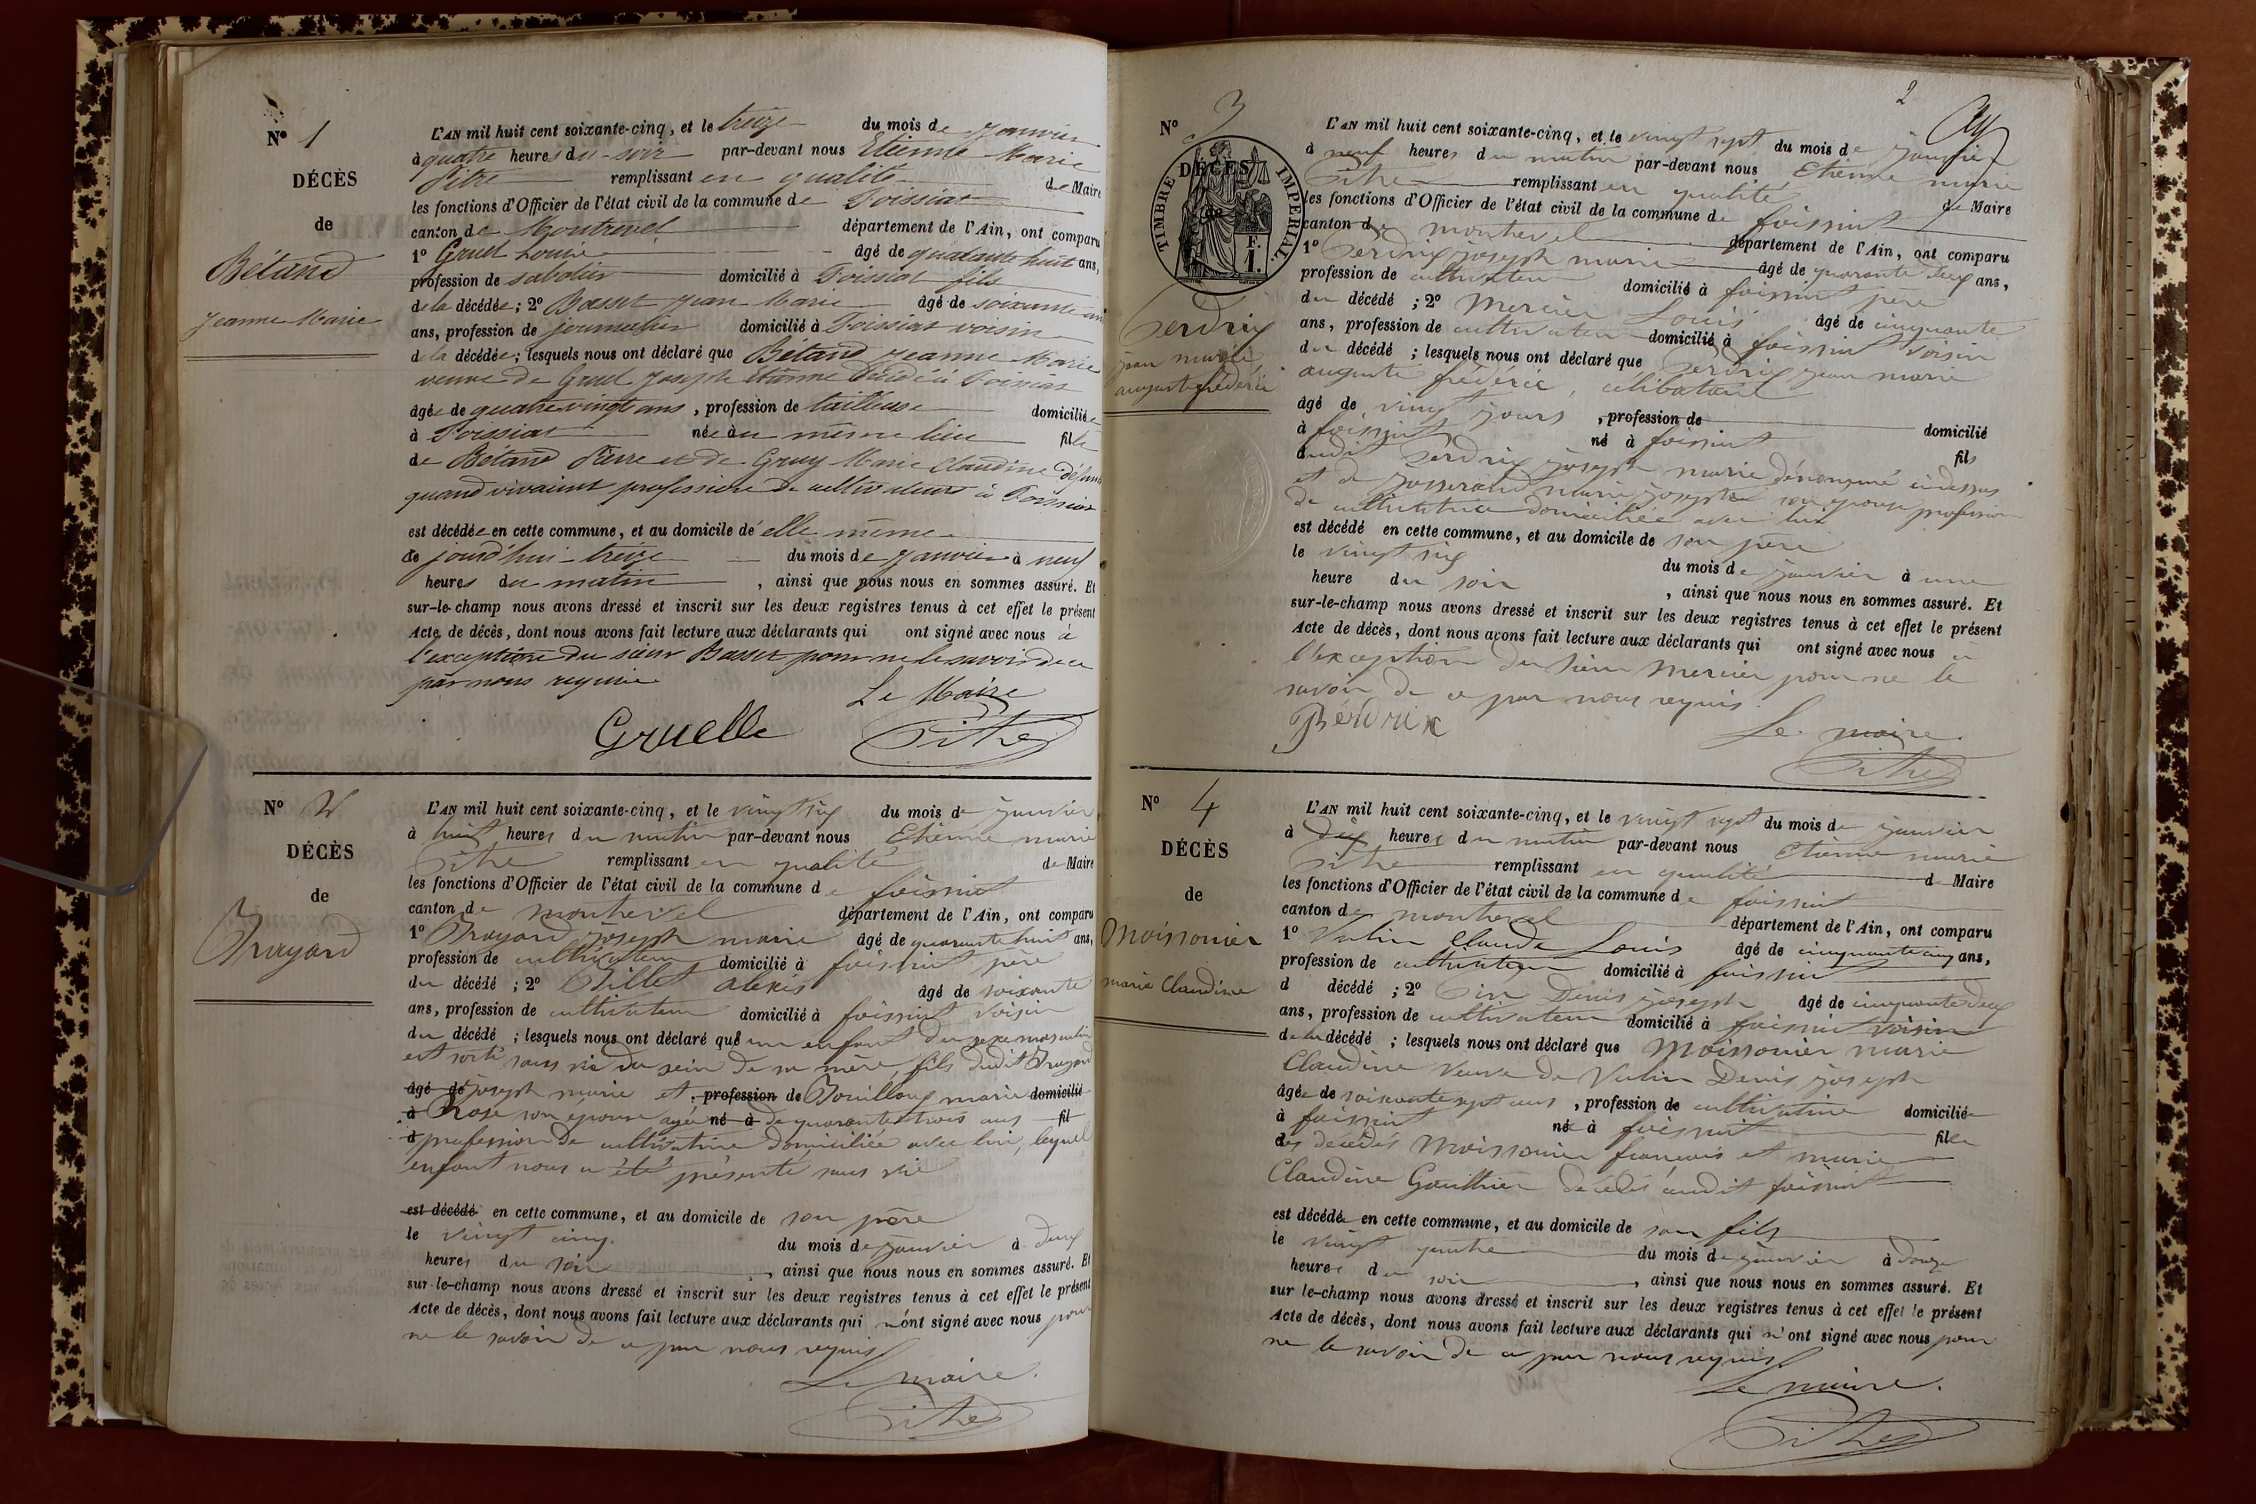 N° 1
DÉCÈS
de
Bétand
Jeanne Marie
L'AN mil huit cent soixante-cinq, et le treize du mois de Janvier
à quatre heures du soir par-devant nous Etienne Marie
Pitre remplissant en qualité de Maire
les fonctions d'Officier de l'état civil de la commune de Foissiat
canton de Montrevel département de l'Ain, ont comparu
1° Gruel Louis âgé de quarante huit ans,
profession de sabotier domicilié à Foissiat fils
de la décédée; 2° Basset Jean Marie âgé de soixante un
ans, profession de journalier domicilié à Foissiat voisin
de la décédée; lesquels nous ont déclaré que Bétand Jeanne Marie
veuve de Gruel Joseph Etienne décédé à Foissiat
âgée de quatre vingt ans, profession de tailleuse domiciliée
à Foissiat née au même lieu fille
de Bétand Pierre et de Gruy Marie Claudine défunts
quand vivaient profession de cultivateurs à Foissiat
est décédée en cette commune, et au domicile de elle même
ce jourd'hui treize du mois de Janvier à neuf
heures du matin, ainsi que nous nous en sommes assuré. Et
sur-le-champ nous avons dressé et inscrit sur les deux registres tenus à cet effet le présent
Acte de décès, dont nous avons fait lecture aux déclarants qui ont signé avec nous à
l'exception du sieur Basset pour ne le savoir de ce
par nous requis
Le Maire
Gruelle Pitre
N° 2
DÉCÈS
de
Brayard
L'AN mil huit cent soixante-cinq, et le vingt six du mois de janvier
à huit heures du matin par-devant nous Etienne marie
Pitre remplissant en qualité de Maire
les fonctions d'Officier de l'état civil de la commune de foissiat
canton de montrevel département de l'Ain, ont comparu
1° Brayard joseph marie âgé de quarante huit ans,
profession de cultivateur domicilié à foissiat père
du décédé; 2° Billet alexis âgé de soixante
ans, profession de cultivateur domicilié à foissiat voisin
du décédé; lesquels nous ont déclaré que un enfant du sexe masculin
est sorti sans vie du sein de sa mère, fils dudit Brayard
âgé de joseph marie et, profession de Bouilloux marie domicilié
à Rose son épouse agée né à de quarante trois ans fil
d profession de cultivatrice domiciliée avec lui, lequel
enfant nous a été présenté sans vie
est décédé en cette commune, et au domicile de son père
le vingt cinq du mois de janvier à deux
heures du soir, ainsi que nous nous en sommes assuré. Et
sur-le-champ nous avons dressé et inscrit sur les deux registres tenus à cet effet le présent
Acte de décès, dont nous avons fait lecture aux déclarants qui n'ont signé avec nous pour
ne le savoir de ce par nous requis
Le maire.
Pitre
2
N° 3
TIMBRE IMPERIAL
DÉCÈS
de
F.
1.
Perdrix
jean marie
auguste frédéric
L'AN mil huit cent soixante-cinq, et le vingt sept du mois de janvier
à neuf heures du matin par-devant nous Etienne marie
Pitre remplissant en qualité de Maire
les fonctions d'Officier de l'état civil de la commune de foissiat
canton de montrevel département de l'Ain, ont comparu
1° Perdrix joseph marie âgé de quarante deux ans,
profession de cultivateur domicilié à foissiat père
du décédé; 2° Mercier Louis âgé de cinquante
ans, profession de cultivateur domicilié à foissiat voisin
du décédé; lesquels nous ont déclaré que Perdrix jean marie
auguste frédéric, célibataire
âgé de vingt jours, profession de domicilié
à foissiat né à foissiat fils
dudit Perdrix joseph marie dénommé ci dessus
et de josserand marie josephe son épouse profession
de cultivatrice domiciliée avec lui
est décédé en cette commune, et au domicile de son père
le vingt six du mois de janvier à une
heure du soir, ainsi que nous nous en sommes assuré. Et
sur-le-champ nous avons dressé et inscrit sur les deux registres tenus à cet effet le présent
Acte de décès, dont nous avons fait lecture aux déclarants qui ont signé avec nous à
l'exception du sieur Mercier pour ne le
savoir de ce par nous requis
Perdrix Le maire.
Pitre
N° 4
DÉCÈS
de
Moissonier
marie Claudine
L'AN mil huit cent soixante-cinq, et le vingt sept du mois de janvier
à dix heures du matin par-devant nous Etienne marie
Pitre remplissant en qualité de Maire
les fonctions d'Officier de l'état civil de la commune de foissiat
canton de montrevel département de l'Ain, ont comparu
1° Vulin Claude Louis âgé de cinquante cinq ans,
profession de cultivateur domicilié à foissiat
d décédé; 2° Pin Denis joseph âgé de cinquante deux
ans, profession de cultivateur domicilié à foissiat voisin
de la décédé; lesquels nous ont déclaré que Moissonier marie
Claudine veuve de Vulin Denis joseph
âgée de soixante sept ans, profession de cultivatrice domiciliée
à foissiat né à foissiat fille
des décédés Moissonier françois et marie
Claudine Gauthier décédés audit foissiat
est décédée en cette commune, et au domicile de son fils
le vingt quatre du mois de janvier à douze
heures du soir, ainsi que nous nous en sommes assuré. Et
sur-le-champ nous avons dressé et inscrit sur les deux registres tenus à cet effet le présent
Acte de décès, dont nous avons fait lecture aux déclarants qui n'ont signé avec nous pour
ne le savoir de ce par nous requis
Le maire.
Pitre